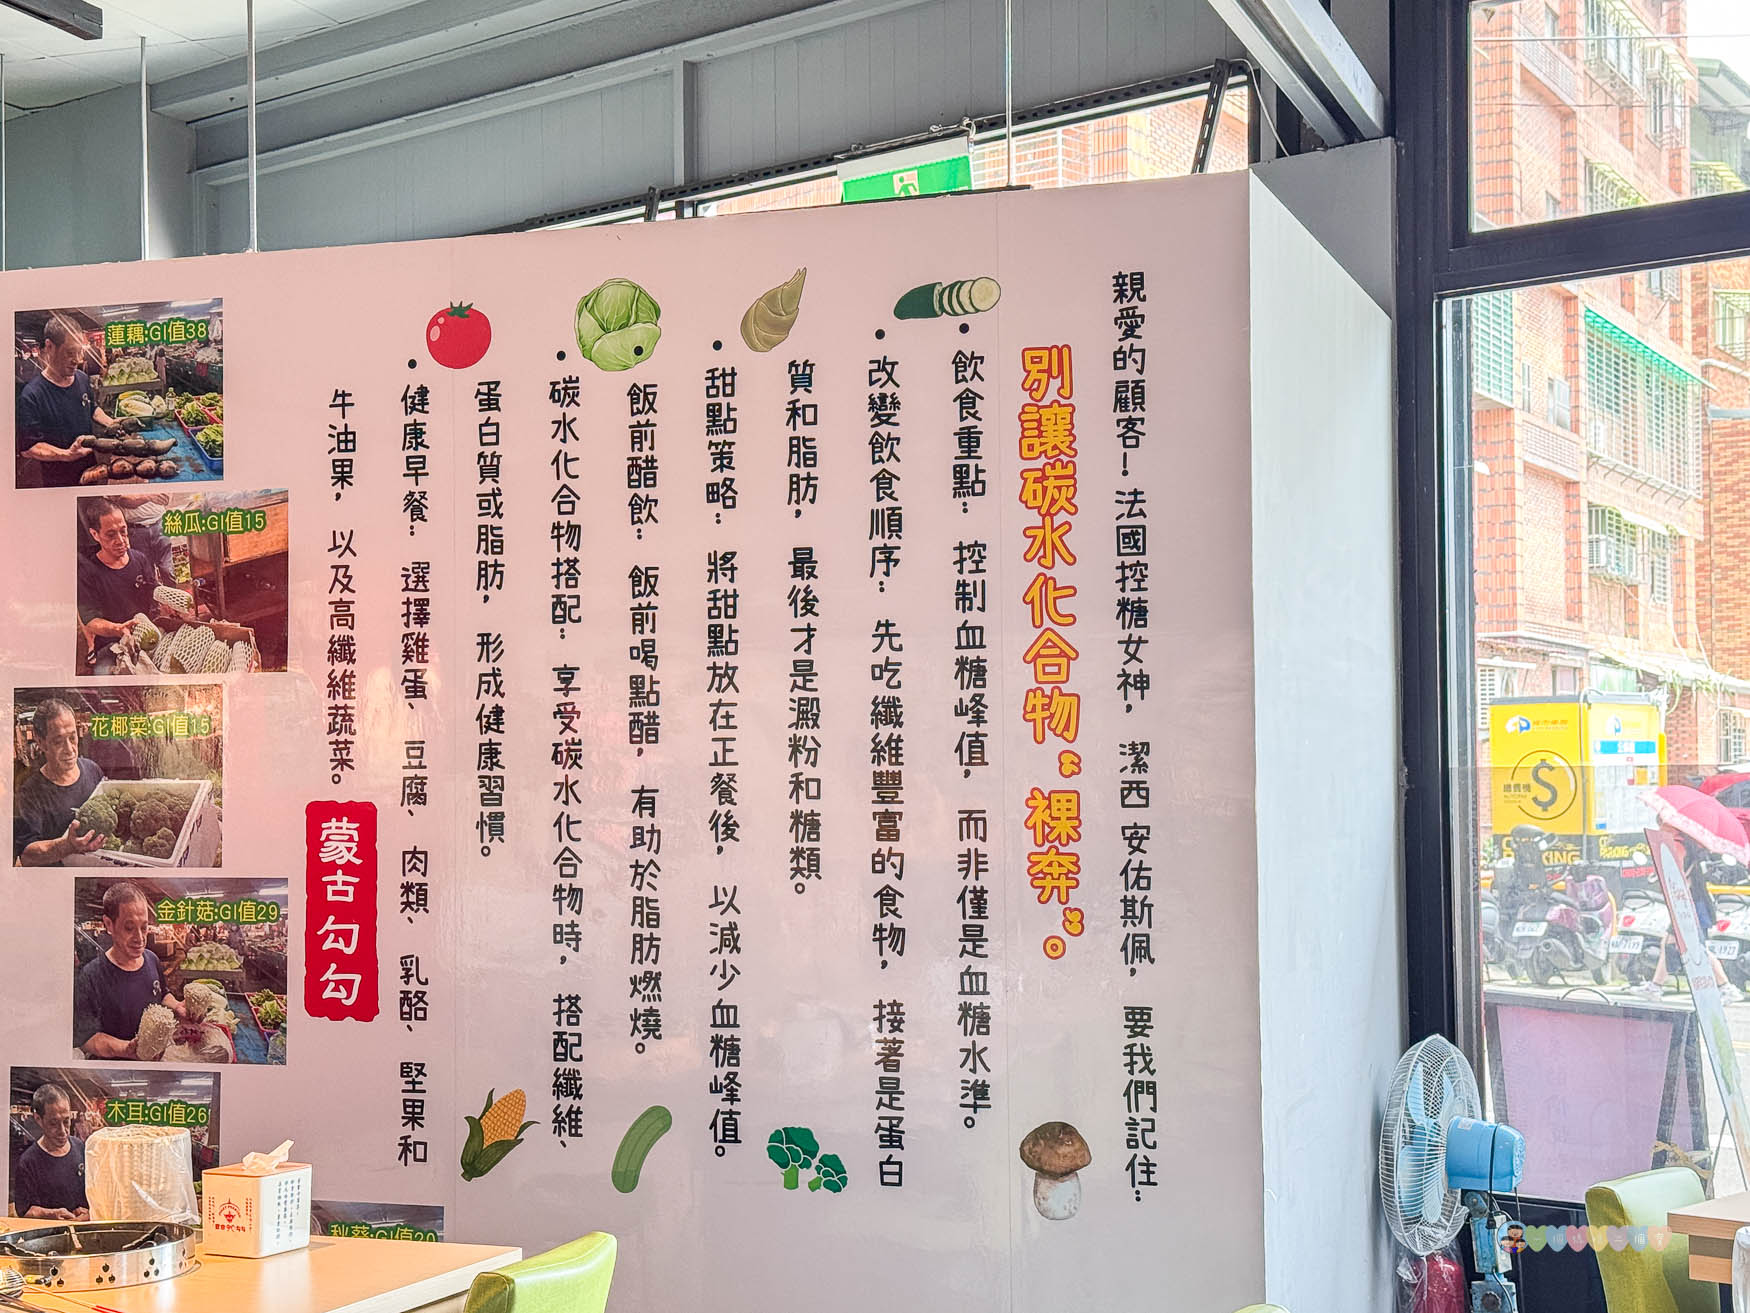 親愛的顧客！法國控糖女神，潔西 安佑斯佩，要我們記住：
別讓碳水化合物"裸奔"。
• 飲食重點：控制血糖峰值，而非僅是血糖水準。
• 改變飲食順序：先吃纖維豐富的食物，接著是蛋白
質和脂肪，最後才是澱粉和糖類。
• 甜點策略：將甜點放在正餐後，以減少血糖峰值。
• 飯前醋飲：飯前喝點醋，有助於脂肪燃燒。
• 碳水化合物搭配：享受碳水化合物時，搭配纖維、
蛋白質或脂肪，形成健康習慣。
• 健康早餐：選擇雞蛋、豆腐、肉類、乳酪、堅果和
牛油果，以及高纖維蔬菜。
蒙古勾勾
蓮藕:GI值38
絲瓜:GI值15
花椰菜:GI值15
金針菇:GI值29
木耳:GI值26
秋葵:GI值20
繳費機